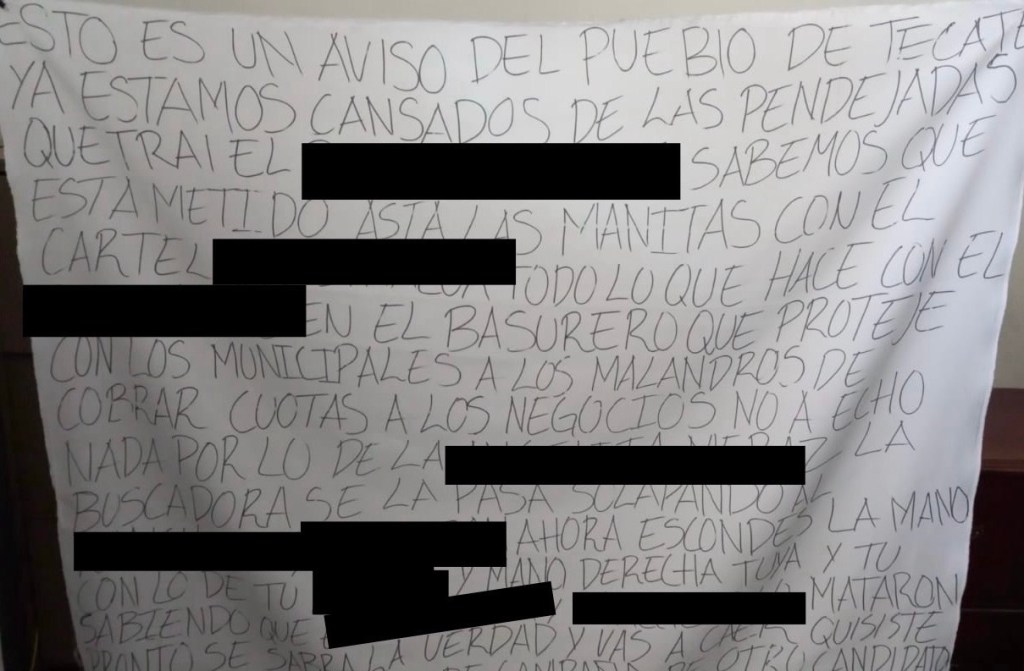 ESTO ES UN AVISO DEL PUEBLO DE TECATE
YA ESTAMOS CANSADOS DE LAS PENDEJADAS
QUE TRAI EL SABEMOS QUE
ESTA METIDO ASTA LAS MANITAS CON EL
CARTEL TODO LO QUE HACE CON EL
EN EL BASURERO QUE PROTEJE
CON LOS MUNICIPALES A LOS MALANDROS DE
COBRAR CUOTAS A LOS NEGOCIOS NO A ECHO
NADA POR LO DE LA LA
BUSCADORA SE LA PASA SOLAPANDO AL
AHORA ESCONDES LA MANO
CON LO DE TU Y MANO DERECHA TUYA Y TU
MATARON
SABIENDO QUE LA VERDAD Y VAS A CAER QUISISTE
PRONTO SE SABRA DE CAMPAÑA DE OTRO CANDIDATO